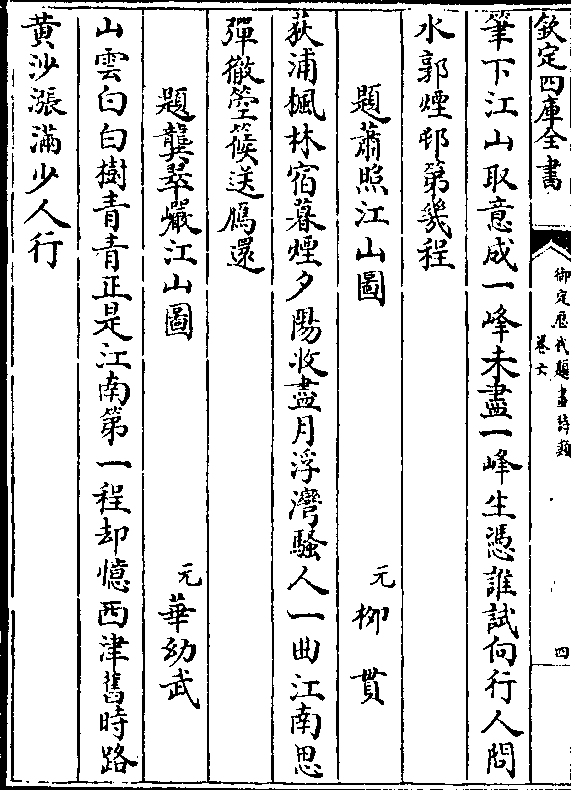 欽定四庫全書
御定歷代題畫詩類
卷六
四
筆下江山取意成一峰未盡一峰生憑誰試向行人問
水郭煙邨第幾程
題蕭照江山圖
元柳貫
荻浦楓林宿暮煙夕陽收盡月浮灣騷人一曲江南思
彈徹箜篌送鴈還
題龔翠巖江山圖
元華幼武
山雲白白樹青青正是江南第一程却憶西津舊時路
黃沙漲滿少人行